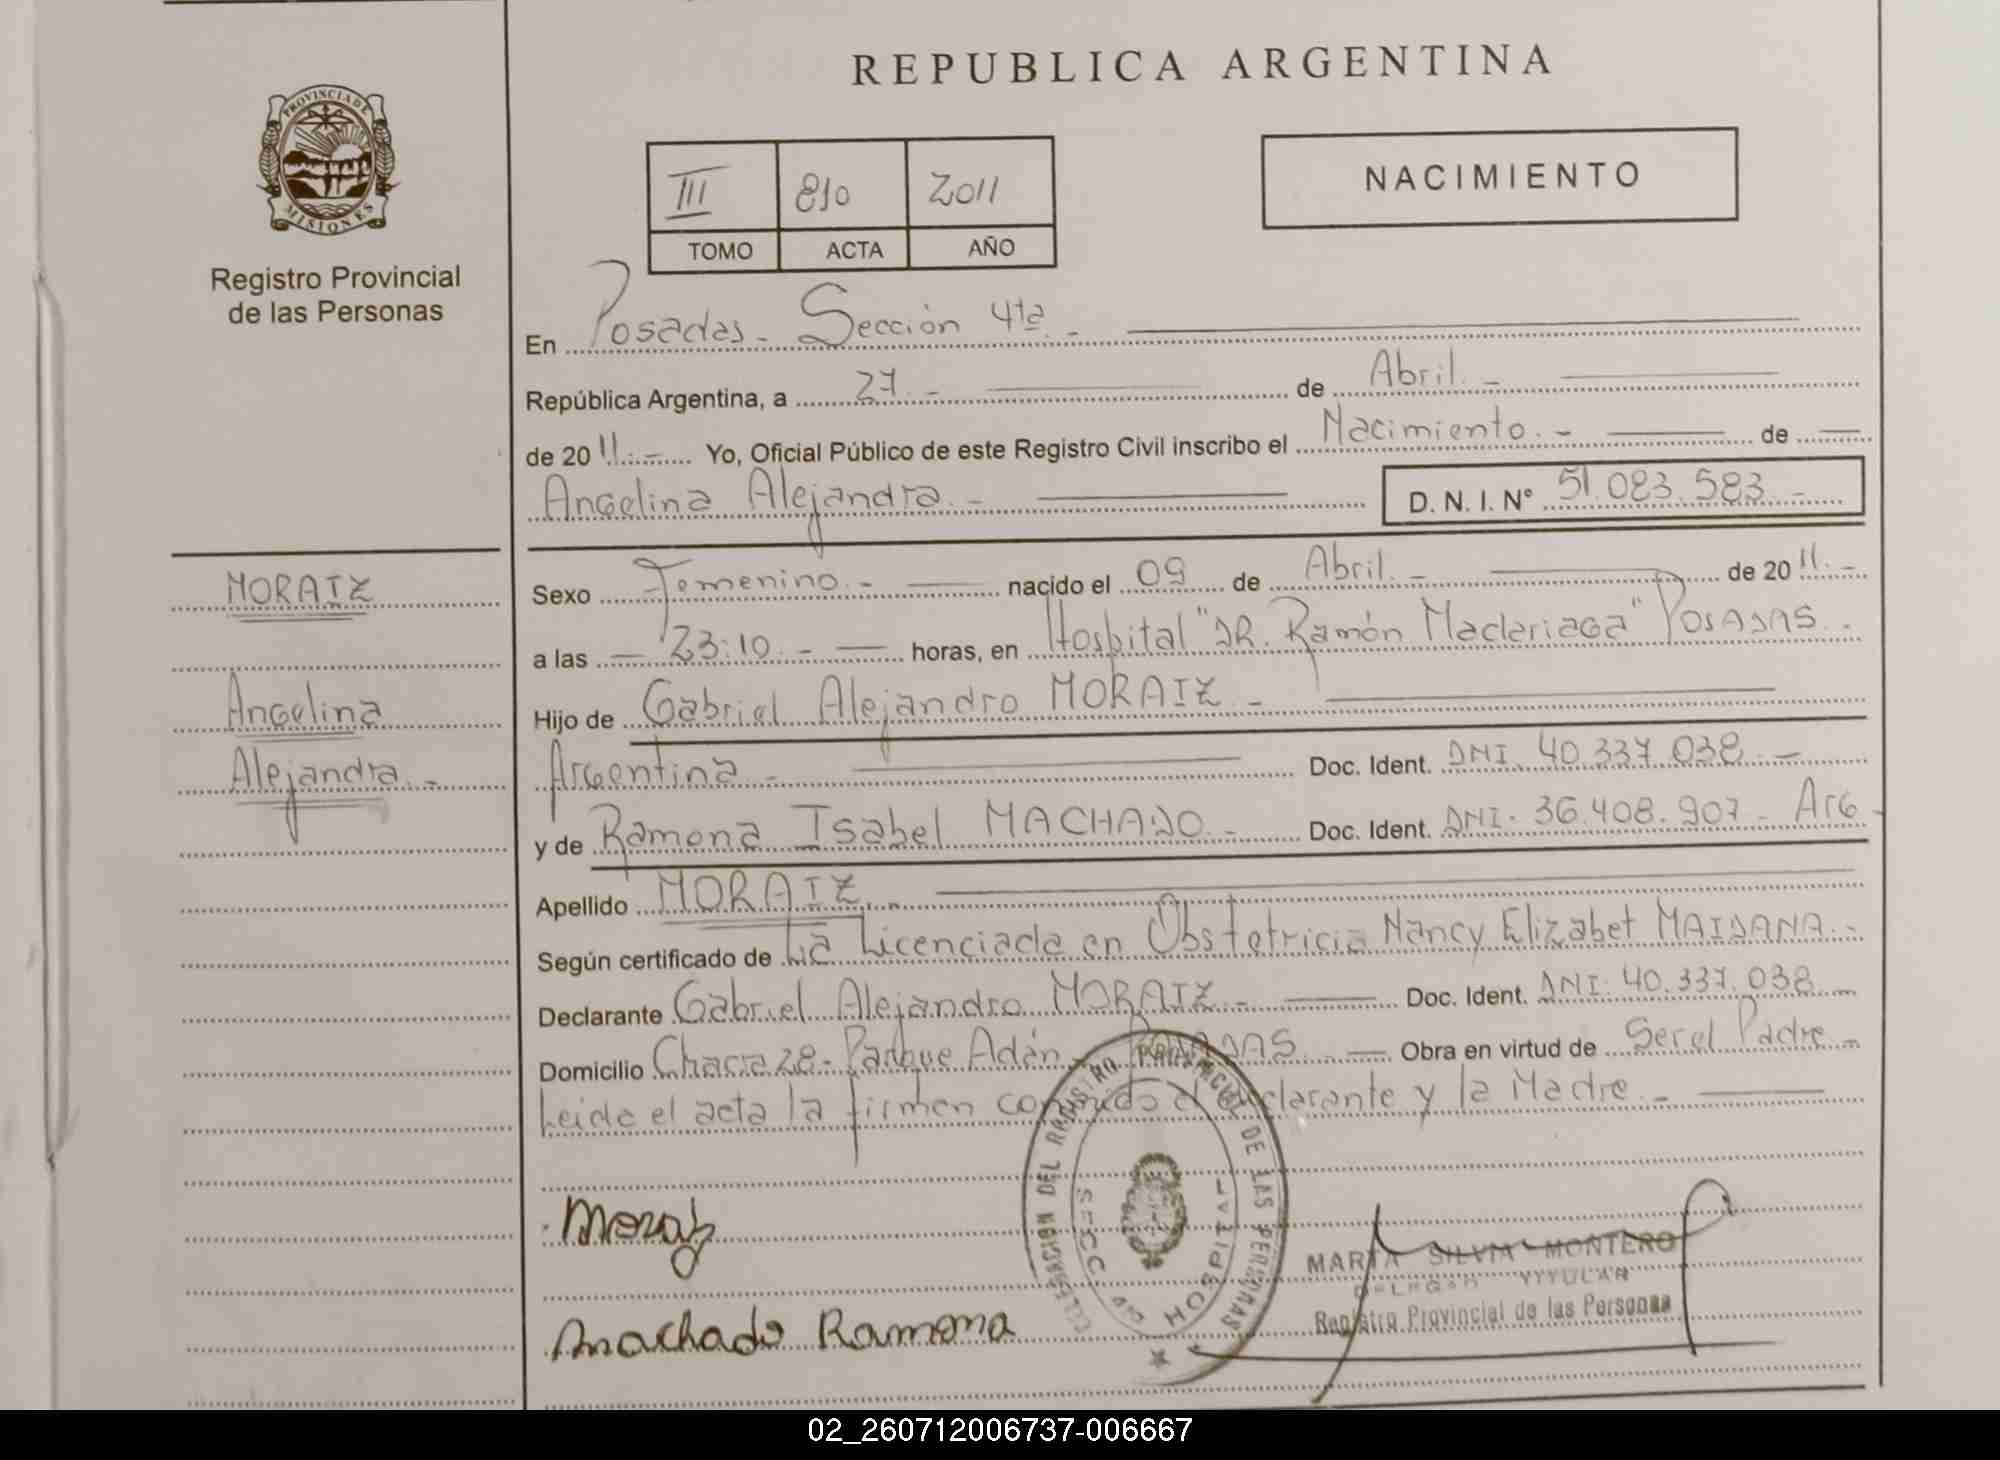 REPUBLICA ARGENTINA
PROVINCIA DE MISIONES
Registro Provincial
de las Personas
III 810 2011
TOMO ACTA AÑO
NACIMIENTO
En Posadas - Sección 4ta. -
República Argentina, a 27. - de Abril. -
de 2011. - Yo, Oficial Público de este Registro Civil inscribo el Nacimiento. - de
Angelina Alejandra. - D. N. I. Nº 51.083.583 -
MORAIZ
Angelina
Alejandra. -
Sexo Femenino. - nacido el 09 de Abril. - de 2011. -
a las 23:10. - horas, en Hospital "DR. Ramón Madariaga" POSADAS. -
Hijo de Gabriel Alejandro MORAIZ. -
Argentina - Doc. Ident. DNI. 40.337.038 -
y de Ramona Isabel MACHADO. - Doc. Ident. DNI. 36.408.907 - Arg
Apellido MORAIZ. -
Según certificado de La Licenciada en Obstetricia Nancy Elizabet MAIDANA. -
Declarante Gabriel Alejandro MORAIZ. - Doc. Ident. DNI. 40.337.038
Domicilio Chacra 28 - Parque Adán - POSADAS. - Obra en virtud de Ser el Padre -
Leida el acta la firman conmido el declarante y la Madre. -
Moraiz
Machado Ramona
DEL REGISTRO PROVINCIAL DE LAS PERSONAS
HOSPITAL
MARTA SILVIA MONTERO
TITULAR
Registro Provincial de las Personas
02_260712006737-006667